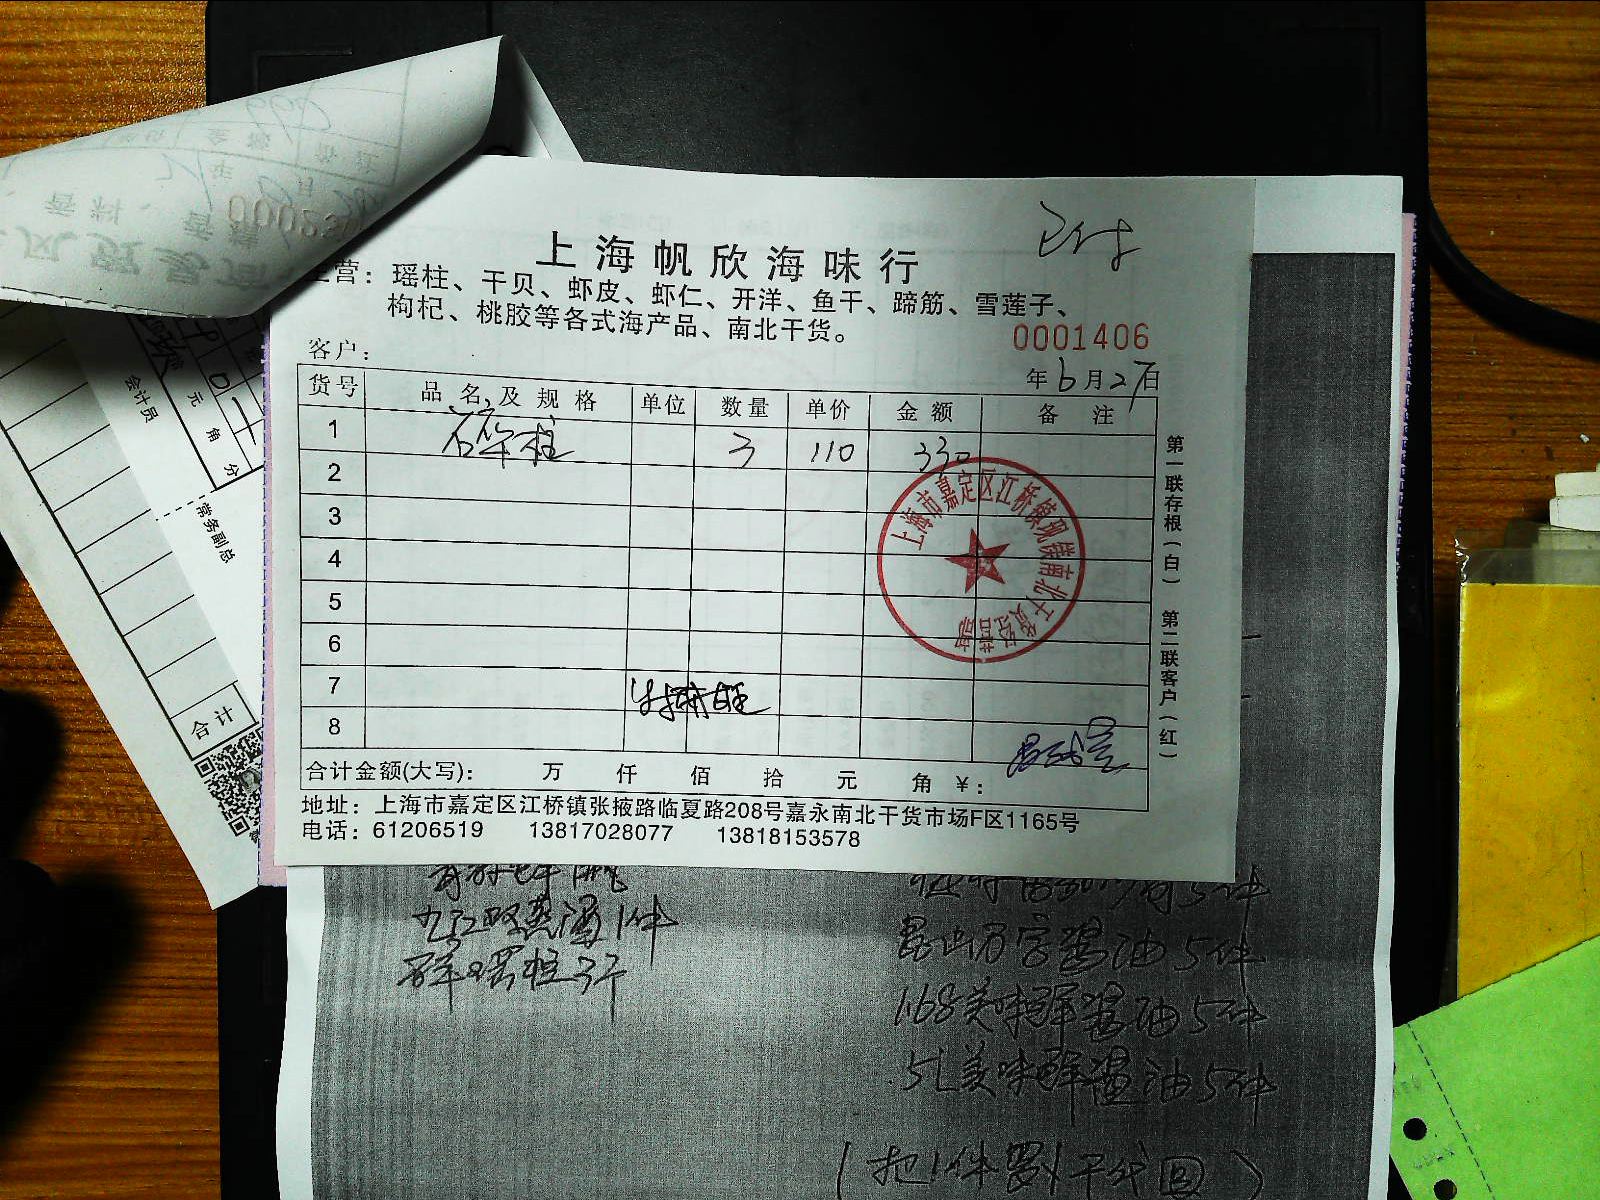 已付
上海帆欣海味行
主营：瑶柱、干贝、虾皮、虾仁、开洋、鱼干、蹄筋、雪莲子、
枸杞、桃胶等各式海产品、南北干货。
0001406
客户：
年6月27日
货号 品名及规格 单位 数量 单价 金额 备注
1 碎柱 3 110 330
2
3
4
5
6
7
8
合计金额(大写)： 万 仟 佰 拾 元 角 ¥：
地址：上海市嘉定区江桥镇张掖路临夏路208号嘉永南北干货市场F区1165号
电话：61206519 13817028077 13818153578
第一联存根（白） 第二联客户（红）
上海市嘉定区江桥镇
南北干货
000230
会计员
元
角
分
常务副总
合计
1件
昆山万字酱油5件
1.68美味鲜酱油5件
5L美味鲜酱油5件